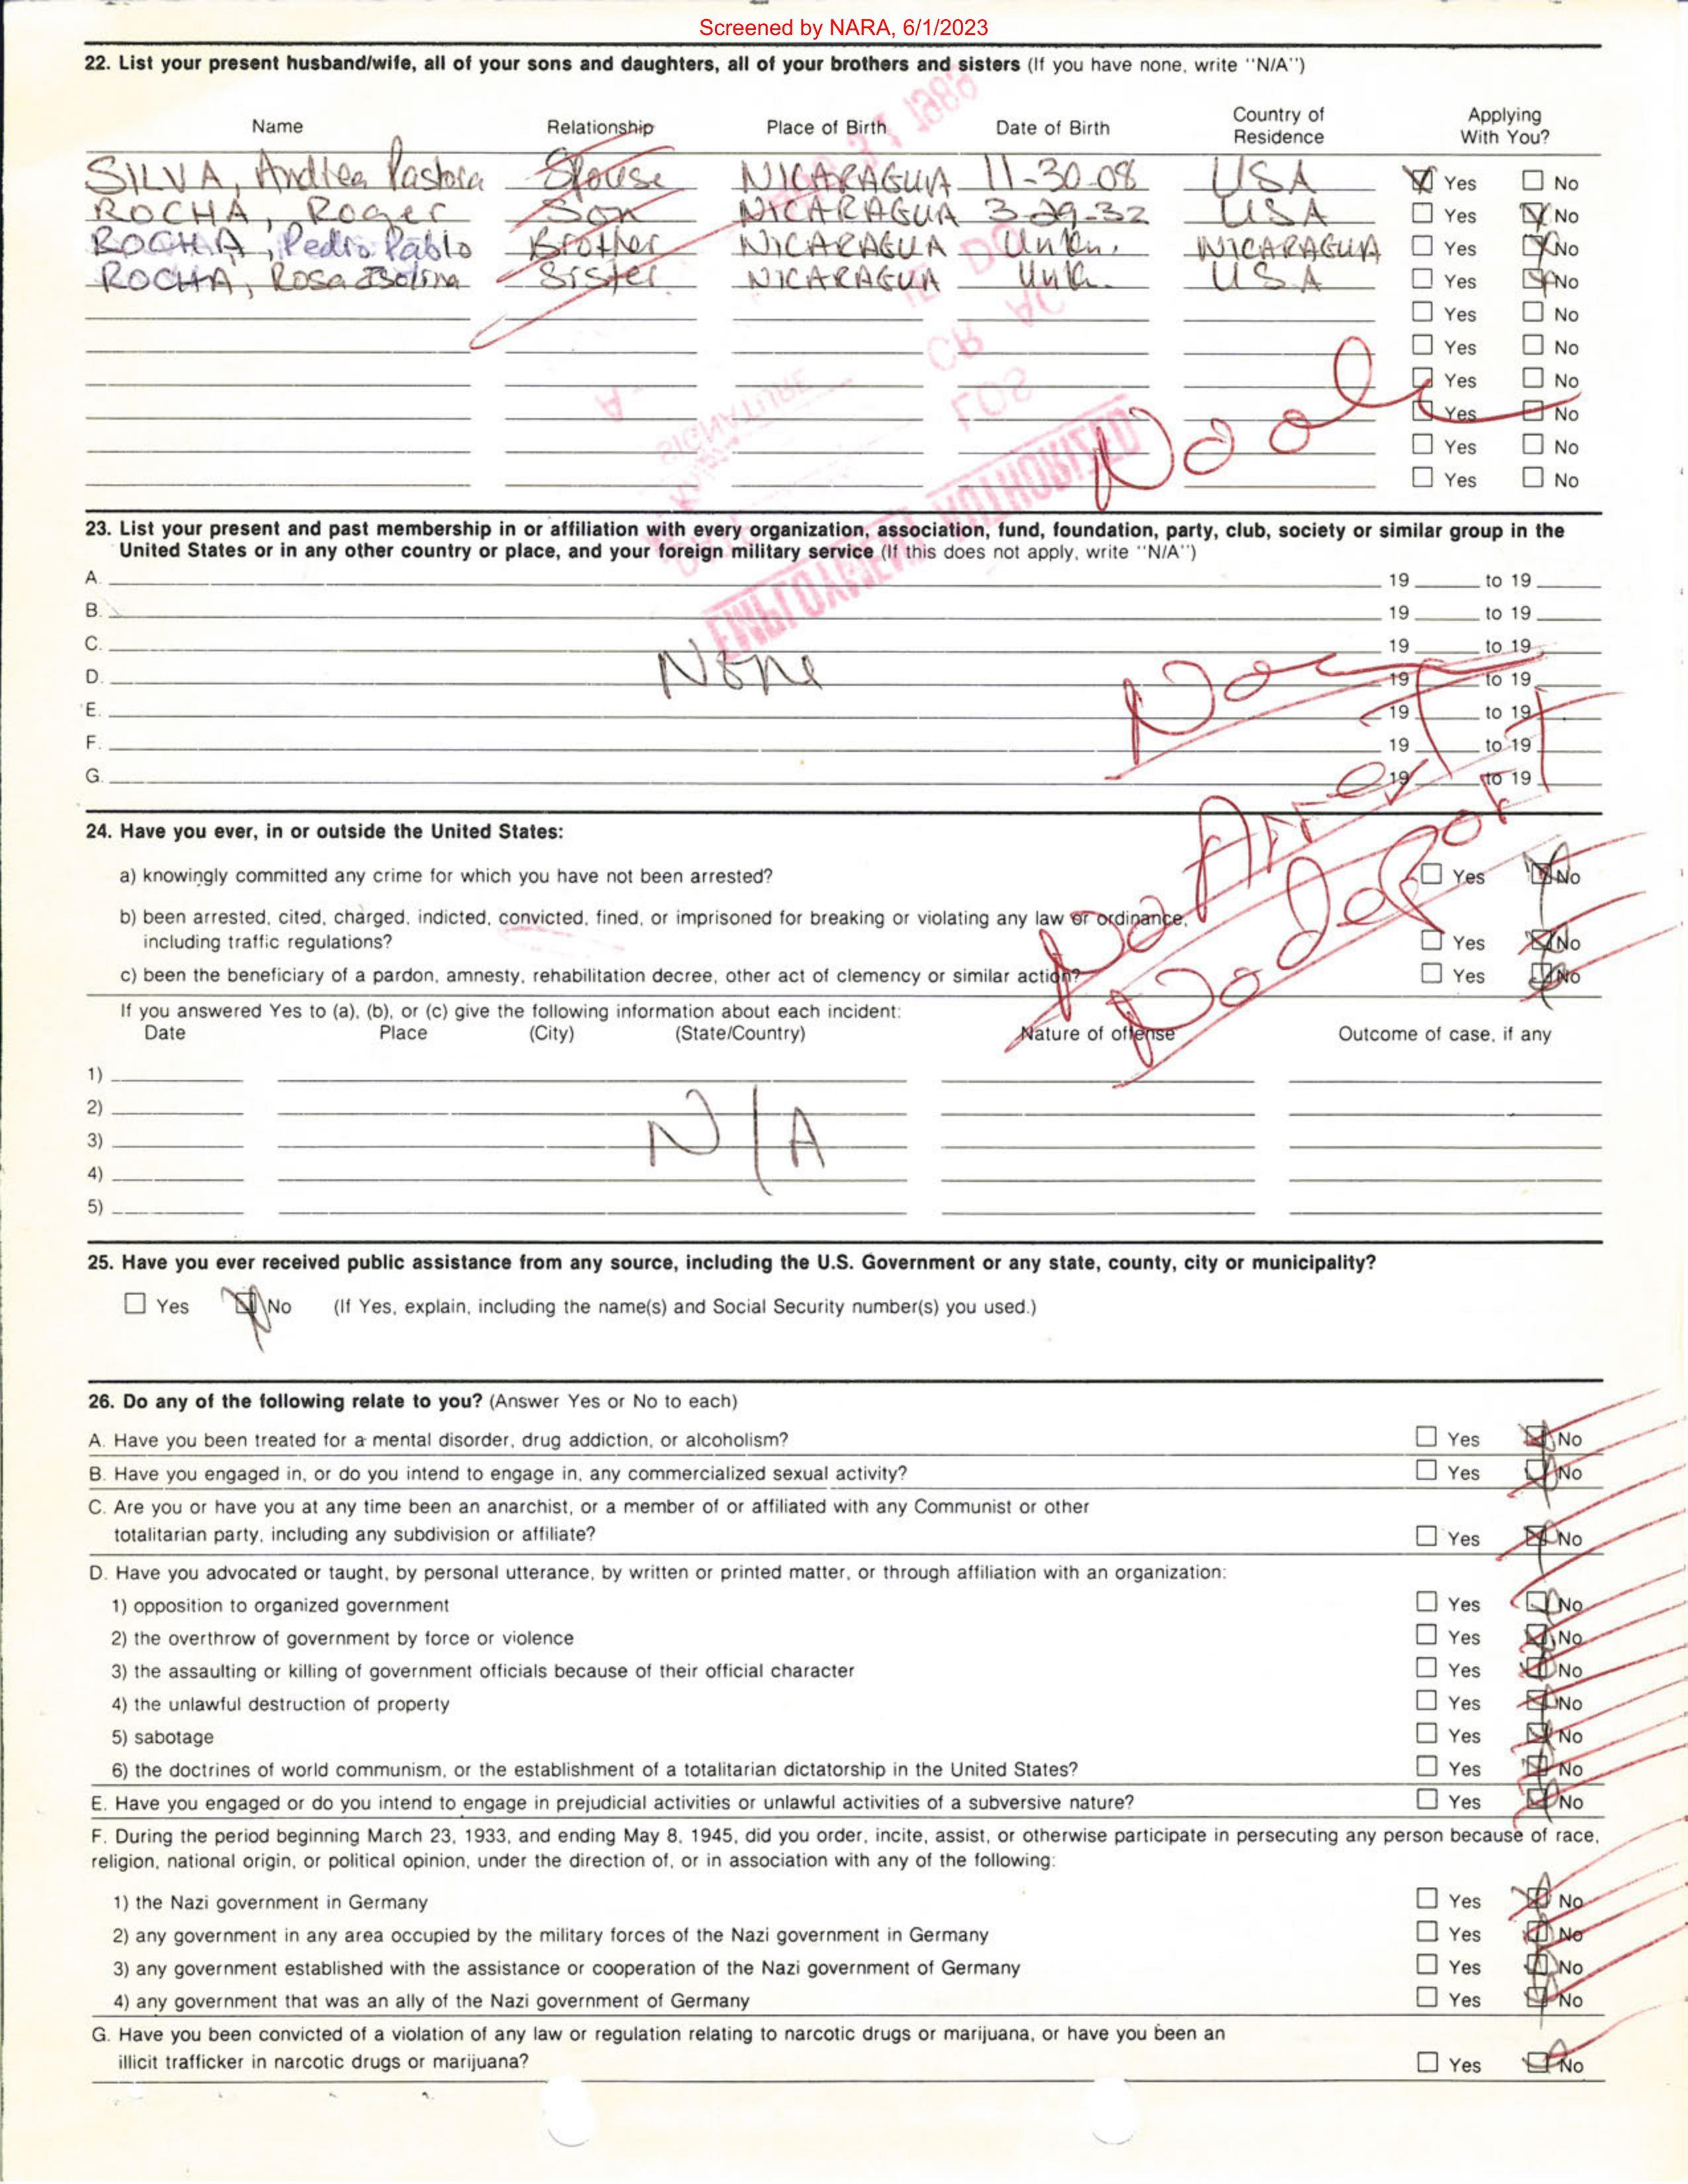 Screened by NARA, 6/1/2023
22. List your present husband/wife, all of your sons and daughters, all of your brothers and sisters (If you have none, write "N/A")
Name Relationship Place of Birth Date of Birth Country of Residence Applying With You?
SILVA, Andrea Pastora Spouse NICARAGUA 11-30-08 USA Yes No
ROCHA, Roger Son NICARAGUA 3-29-32 USA Yes No
ROCHA, Pedro Pablo Brother NICARAGUA Unkn. NICARAGUA Yes No
ROCHA, Rosa Isolina Sister NICARAGUA Unk. USA Yes No
Yes No
Yes No
Yes No
Yes No
Yes No
Yes No
EMPLOYMENT AUTHORIZED
SIGNATURE
23. List your present and past membership in or affiliation with every organization, association, fund, foundation, party, club, society or similar group in the
United States or in any other country or place, and your foreign military service (If this does not apply, write "N/A")
A. 19 to 19
B. 19 to 19
C. 19 to 19
D. None 19 to 19
E. 19 to 19
F. 19 to 19
G. 19 to 19
No Arrest
No depor
24. Have you ever, in or outside the United States:
a) knowingly committed any crime for which you have not been arrested? Yes No
b) been arrested, cited, charged, indicted, convicted, fined, or imprisoned for breaking or violating any law or ordinance,
including traffic regulations? Yes No
c) been the beneficiary of a pardon, amnesty, rehabilitation decree, other act of clemency or similar action? Yes No
If you answered Yes to (a), (b), or (c) give the following information about each incident:
Date Place (City) (State/Country) Nature of offense Outcome of case, if any
1)
2)
3) N/A
4)
5)
25. Have you ever received public assistance from any source, including the U.S. Government or any state, county, city or municipality?
Yes No (If Yes, explain, including the name(s) and Social Security number(s) you used.)
26. Do any of the following relate to you? (Answer Yes or No to each)
A. Have you been treated for a mental disorder, drug addiction, or alcoholism? Yes No
B. Have you engaged in, or do you intend to engage in, any commercialized sexual activity? Yes No
C. Are you or have you at any time been an anarchist, or a member of or affiliated with any Communist or other
totalitarian party, including any subdivision or affiliate? Yes No
D. Have you advocated or taught, by personal utterance, by written or printed matter, or through affiliation with an organization:
1) opposition to organized government Yes No
2) the overthrow of government by force or violence Yes No
3) the assaulting or killing of government officials because of their official character Yes No
4) the unlawful destruction of property Yes No
5) sabotage Yes No
6) the doctrines of world communism, or the establishment of a totalitarian dictatorship in the United States? Yes No
E. Have you engaged or do you intend to engage in prejudicial activities or unlawful activities of a subversive nature? Yes No
F. During the period beginning March 23, 1933, and ending May 8, 1945, did you order, incite, assist, or otherwise participate in persecuting any person because of race,
religion, national origin, or political opinion, under the direction of, or in association with any of the following:
1) the Nazi government in Germany Yes No
2) any government in any area occupied by the military forces of the Nazi government in Germany Yes No
3) any government established with the assistance or cooperation of the Nazi government of Germany Yes No
4) any government that was an ally of the Nazi government of Germany Yes No
G. Have you been convicted of a violation of any law or regulation relating to narcotic drugs or marijuana, or have you been an
illicit trafficker in narcotic drugs or marijuana? Yes No